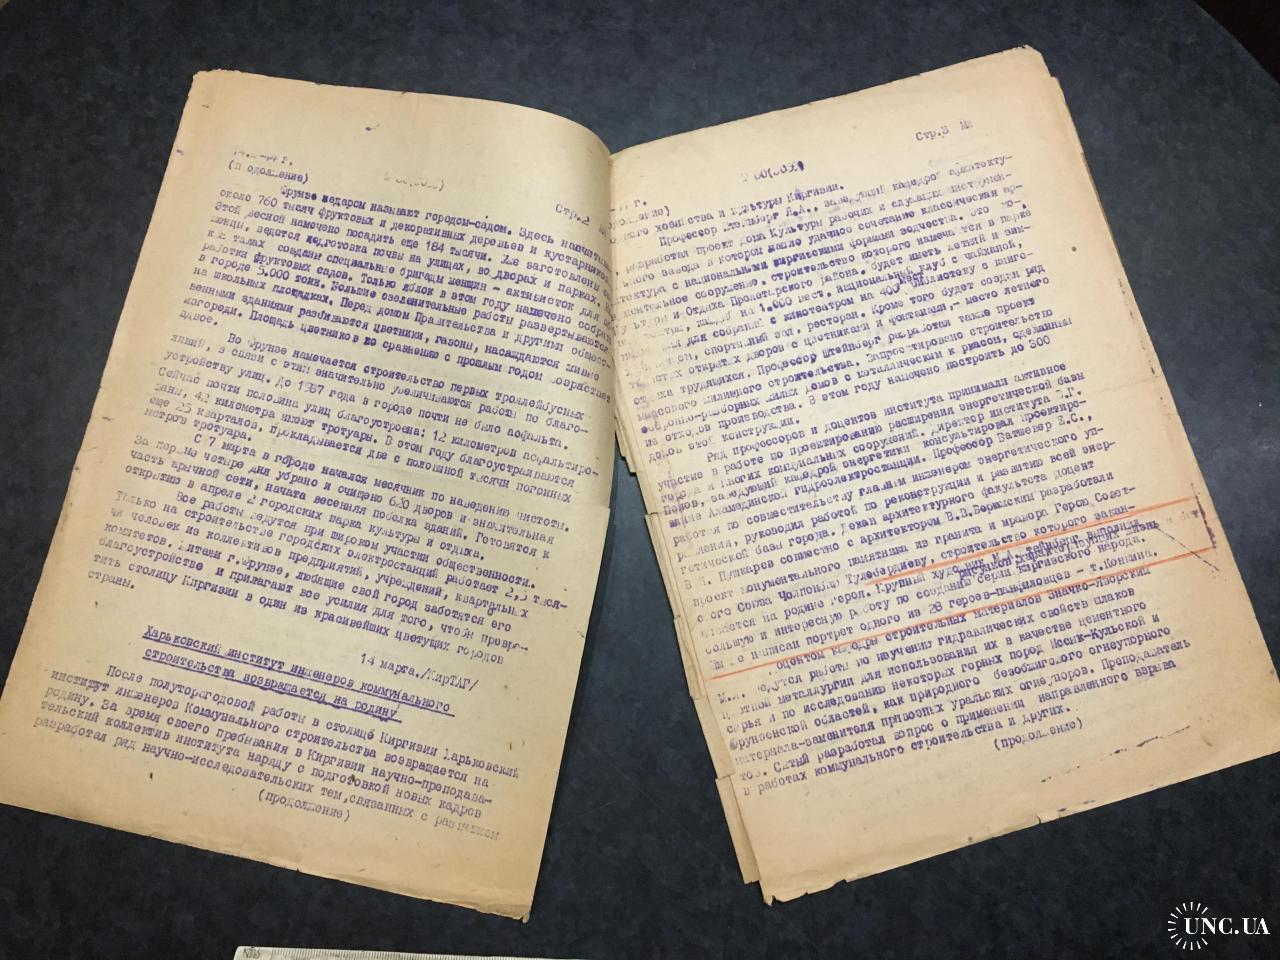 (п одолжение)
Стр.2
Фрунзе недаром называют городом-садом. Здесь насчитыв
около 760 тысяч фруктовых и декоративных деревьев и кустарников.
Этой весной намечено посадить еще 184 тысячи. Уже заготовлены са
женцы, ведется подготовка почвы на улицах, во дворах и парках.
созданы специальные бригады женщин - активисток для об
работки фруктовых садов. Только яблок в этом году намечено собрать
в городе 5.000 тонн. Большие озеленительные работы развертываются
на школьных площадках. Перед домом Правительства и другими общест-
венными зданиями разбиваются цветники, газоны, насаждаются живые
изгороди. Площадь цветников по сравнению с прошлым годом возрастает
вдвое.
Во Фрунзе намечается строительство первых троллейбусных
линий, в связи с этим значительно увеличиваются работы по благо-
устройству улиц. До 1937 года в городе почти не было асфальта.
Сейчас почти половина улиц благоустроена: 12 километров асфальтиро-
ваны, 42 километра имеют тротуары. В этом году благоустраиваются
еще 25 кварталов, прокладывается две с половиной тысячи погонных
метров тротуара.
С 7 марта в городе начался месячник по наведению чистоты.
За первые четыре дня убрано и очищено 620 дворов и значительная
часть арычной сети, начата весенняя побелка зданий. Готовятся к
открытию в апреле 2 городских парка культуры и отдыха.
Все работы ведутся при широком участии общественности.
Только на строительстве городских электростанций работает 2,5 тыся-
чи человек из коллективов предприятий, учреждений, квартальных
комитетов. Жители г.Фрунзе, любящие свой город заботятся о его
благоустройстве и прилагают все усилия для того, чтобы превра-
тить столицу Киргизии в один из красивейших цветущих городов
страны.
14 марта./КирТАГ/
Харьковский институт инженеров коммунального
строительства возвращается на родину
После полуторагодовой работы в столице Киргизии Харьковский
институт инженеров Коммунального строительства возвращается на
родину. За время своего пребывания в Киргизии научно-преподава-
тельский коллектив института наряду с подготовкой новых кадров
разработал ряд научно-исследовательских тем, связанных с развитием
(продолжение)
Стр.3
хозяйства и культуры Киргизии.
Профессор Штейнберг Я.А., заведующий кафедрой архитекту-
разработал проект дома Культуры рабочих и служащих инструмен-
завода в котором нашло удачное сочетание классическая ар-
хитектура с национальными киргизскими формами зодчества. Это мо-
нументальное сооружение, строительство которого намечается в парке
Культуры и Отдыха Пролетарского района, будет иметь летний и зим-
на 1.000 мест, национальный клуб с чайханой,
для собраний с кинотеатром на 400 мест, библиотеку с книго-
спортивный зал, ресторан. Кроме того будет создан ряд
открытых дворов с цветниками и фонтанами,- место летнего
отдыха трудящихся. Профессор Штейнберг разработал также проект
массового жилищного строительства. Запроектировано строительство
сборно-разборных жилых домов с металлическим каркасом, сделанным
из отходов производства. В этом году намечено построить до 300
домов этой конструкции.
Ряд профессоров и доцентов института принимали активное
участие в работе по проектированию расширения энергетической базы
города и многих коммунальных сооружений. Директор института В.Г.
Попов, заведующий кафедрой энергетики консультировал проектиро-
вание Аламединской гидроэлектростанции. Профессор Ватшевер Е.С.,
работая по совместительству главным инженером энергетического уп-
равления, руководил работой по реконструкции и развитию всей энер-
гетической базы города. Декан архитектурного факультета доцент
В.И. Пушкарев совместно с архитектором В.В.Верюжским разработали
проект монументального памятника из гранита и мрамора Герою Совет-
ского Союза Чолпонбаю Тулебердиеву, строительство которого закан-
чивается на родине героя. Крупный художник М.А. Штейнберг выполнил
рисунков характеризующих жизнь и быт
большую и интересную работу по созданию серии киргизского народа.
Им же написан портрет одного из 28 героев-панфиловцев - т.Конкина.
Доцентом кафедры строительных материалов Значко-Яворским
ведутся работы по изучению гидравлических свойств шлаков
цветной металлургии для использования их в качестве цементного
сырья и по исследованию некоторых горных пород Иссык-Кульской и
Фрунзенской областей, как природного безобжигового огнеупорного
материала-заменителя привозных уральских огнеупоров. Преподаватель
тов. разработал вопрос о применении направленного взрыва
в работах коммунального строительства и других.
(продолжение)
UNC.UA